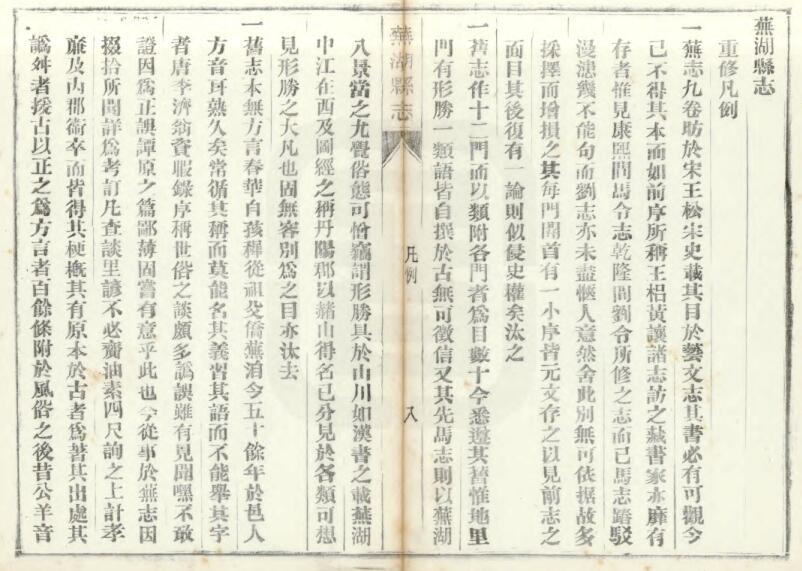 蕪湖縣志
重修凡例
一蕪志九卷昉於宋王松宋史載其目於藝文志其書必有可觀今
已不得其本而如前序所稱王梠黃讓諸志訪之藏書家亦靡有
存者惟見康熙間馬令志乾隆間劉令所修之志而已馬志踳駁
漫漶幾不能句而劉志亦未盡愜人意然舍此別無可依据故多
採擇而增損之其每門開首有一小序皆元文存之以見前志之
面目其後復有一論則似侵史權矣汰之
一舊志作十二門而以類附各門者爲目數十今悉遵其舊惟地里
門有形勝一類語皆自撰於古無可徵信又其先馬志則以蕪湖
蕪湖縣志
凡例
八
八景當之尤覺俗態可憎竊謂形勝具於山川如漢書之載蕪湖
中江在西及圖經之稱丹陽郡以赭山得名已分見於各類可想
見形勝之大凡也固無容別爲之目亦汰去
一舊志本無方言春華自孩穉從祖父僑蕪洎今五十餘年於邑人
方音耳熟久矣常循其稱而莫能名其義習其語而不能舉其字
者唐李濟翁資暇錄序稱世俗之談頗多譌誤雖有見聞嘿不敢
證因爲正誤譚原之篇鄙薄固嘗有意乎此也今從事於蕪志因
掇拾所聞詳爲考訂凡查談里諺不必賫油素四尺詢之上計孝
廉及內郡衞卒而皆得其梗概其有原本於古者爲著其出處其
譌舛者援古以正之爲方言者百餘條附於風俗之後昔公羊音